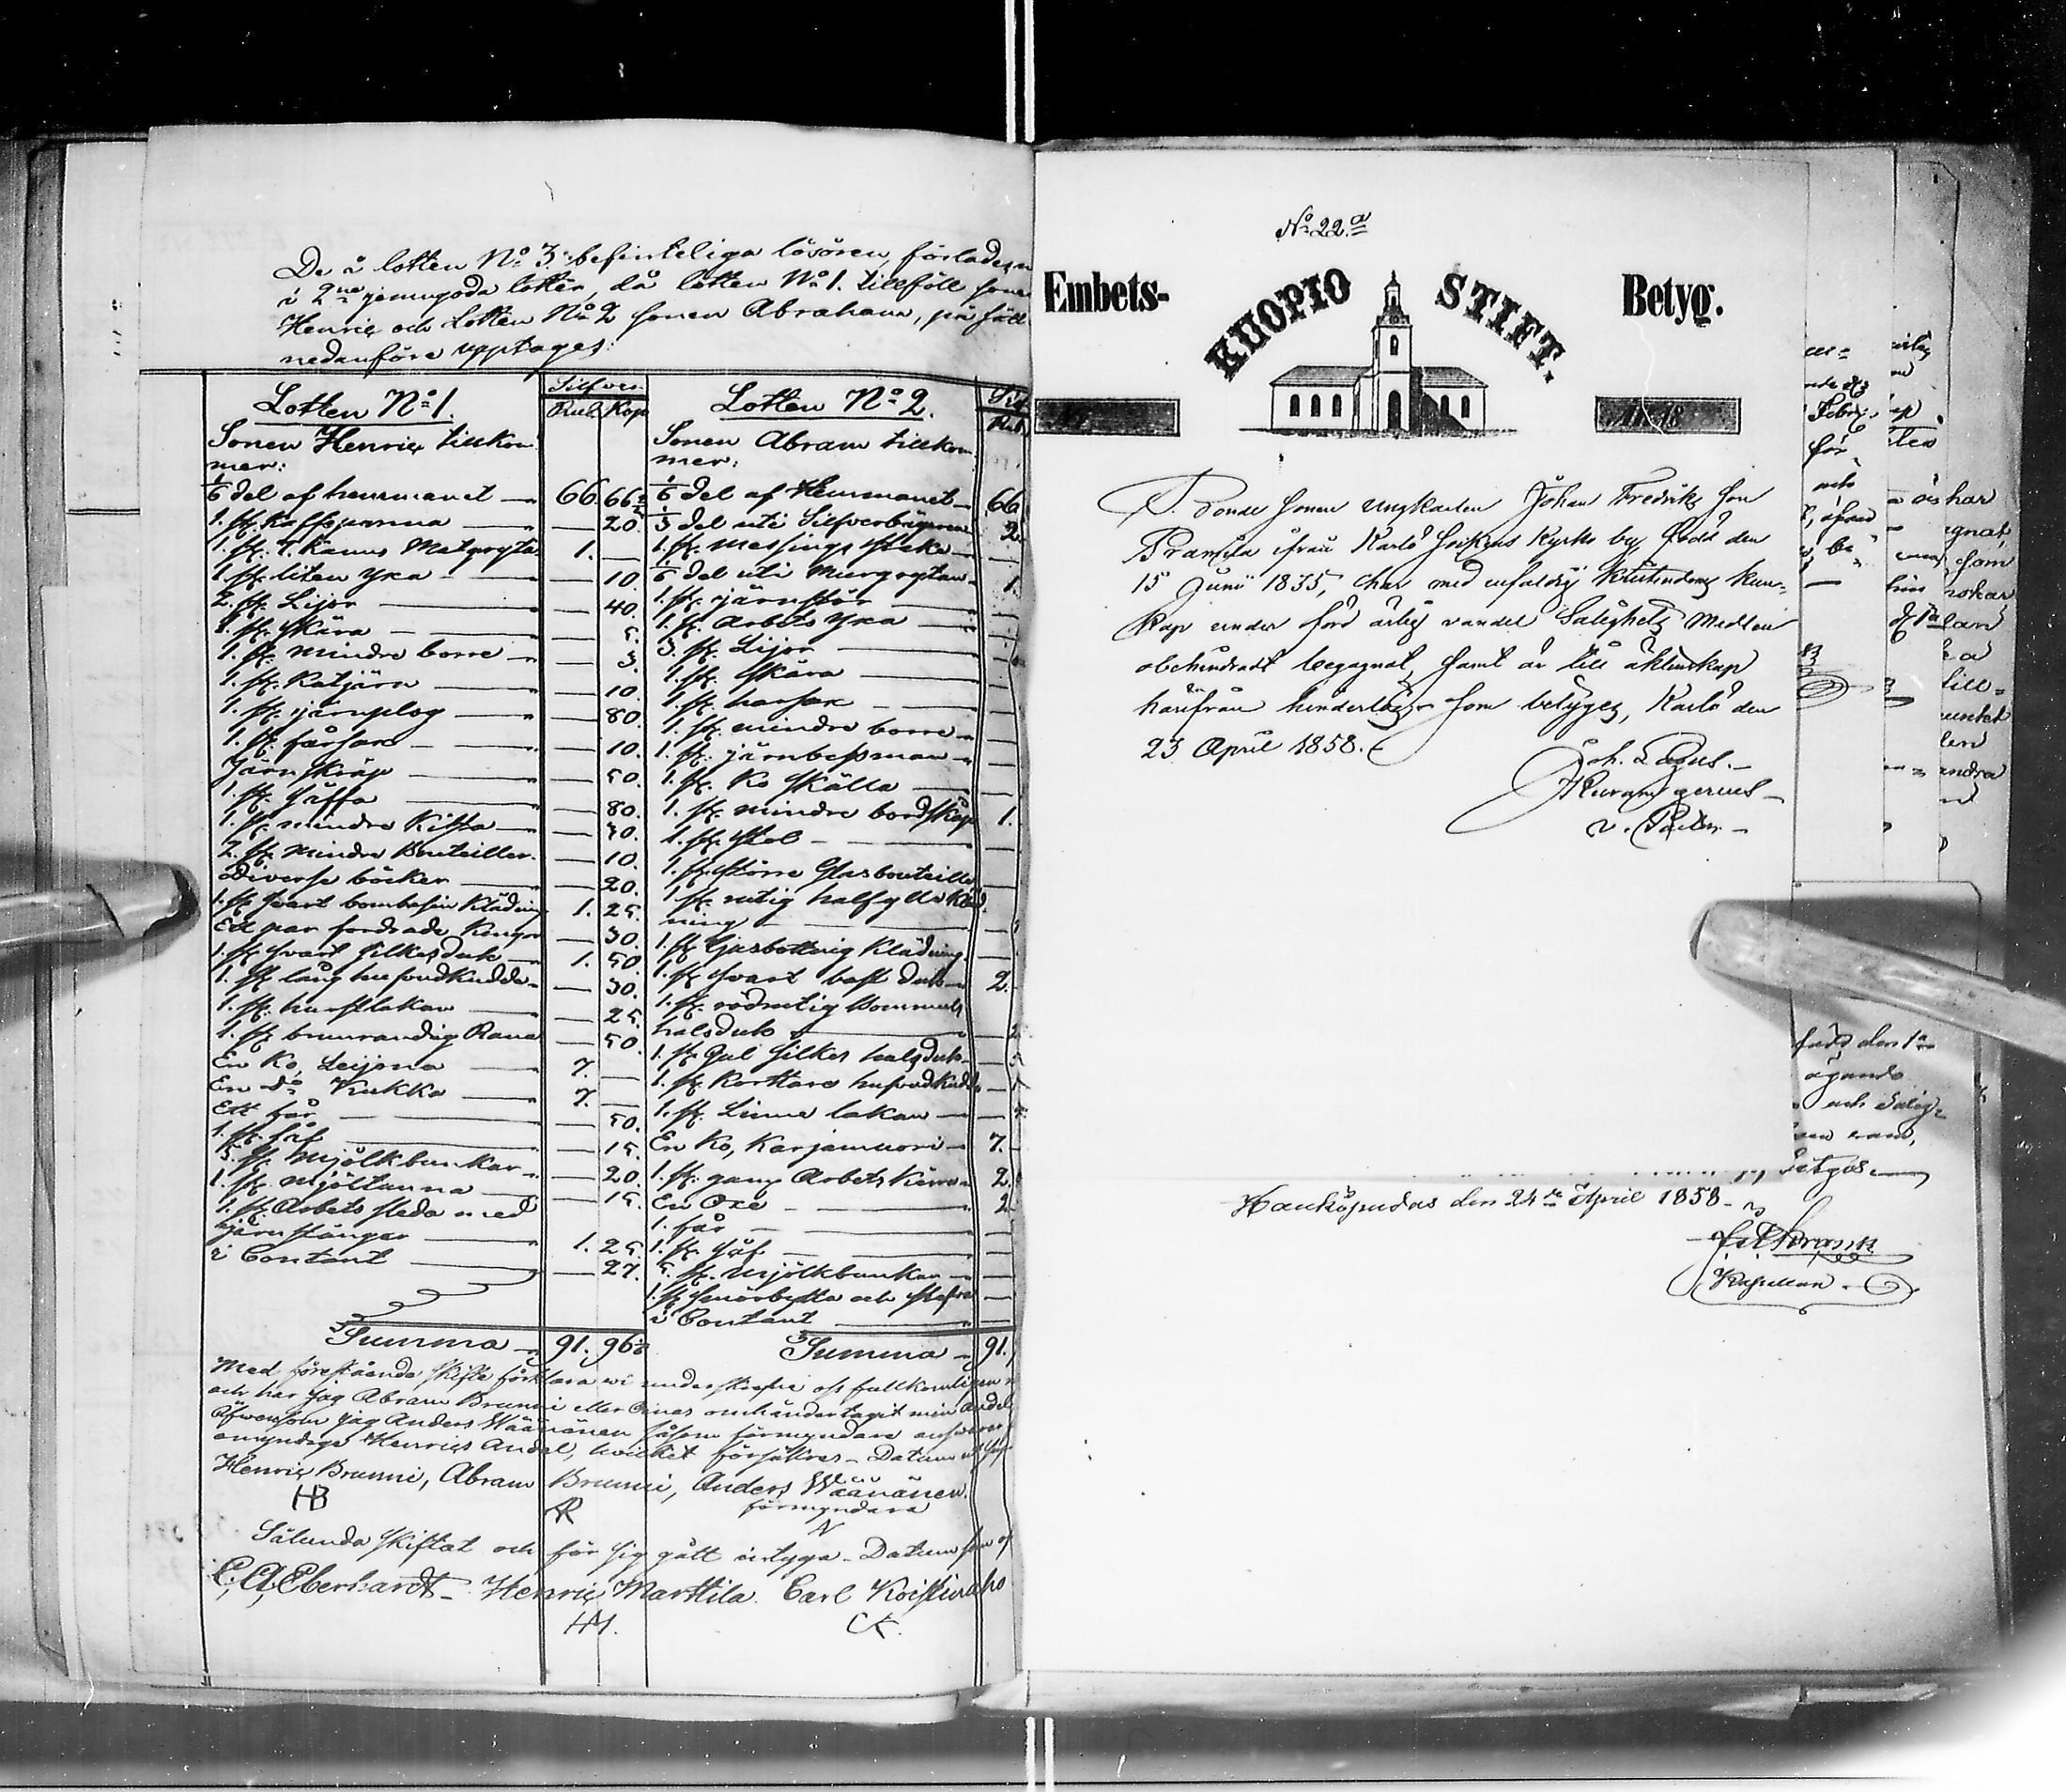 De å lotten No 3. befinteliga lösören, förlades
i 2ne jemngoda lotter, då lotten No 1. tillföll
Henric och Lotten No 2 Sonen Abraham, på sätt
nedanföre upptages:
Lotten No 1.
Silfver
Rub. Kop
Sonen Henric tillkom
mer:
1/6 del af hemmanet 66. 66 2/3
1. st. Kaffepanna 20.
1. st. 7. Kanns Matgryta 1.
1. st. liten Yxa 10.
2. st. Lijor 40.
1. st. Skära 5.
1. st. mindre borre 3.
1. st. Ratjärn 10.
1. st. järnplog 80.
1. st. fårsax 10.
Järn skräp 50.
1. st. Säffa 80.
1. st. mindre Kista 70.
2. st. mindre Bouteiller. 10.
Diverse böcker 20.
1. st. svart bombasin Klädning 1. 25.
Ett par fordrade Kängor 30.
1. st. svart silkesduk 1. 50
1. st. lång hufvudkudde 30.
1. st. hurstlakan 25.
1. st. brunrandig Rana 50.
En Ko, Leijona 7.
En do Kukka 7.
Ett får 50.
1. st. såf 15.
5. st. Mjölkbunkar 20.
1. st. Mjöltunna 15.
1. st. Arbets släda med
järnstänger 1. 25.
i Contant 27.
Summa 91. 96 2/3
Lotten No 2.
Sonen Abram tillkom
mer:
1/6 del af Hemmanet 66
1/3 del uti Silfverbägaren 2.
1. st. Messings
1/6 del uti Murgrytan 1.
1. st. järnstör
1. st. Arbets Yxa
3. st. Lijor
1. st. Skära
1. st. harsax
1. st. mindre borre
1. st. järnbessman
1. st. Ko Skälla
1. st. mindre bordskåp 1.
1. st. Stol
1. st. större Glasbouteille
1. st. rutig halfylle Kläd
ning
1. st. Gulbottnig Klädning
1. st. svart bast duk 2.
1. st. rödrutig Bommuls
halsduk
1. st. Gul Silkes halsduk
1. st. Kortare hufvudkudde
1. st. Linne lakan
En Ko, Karjamuori 7.
1. st. gamm Arbets Kärra 2.
En Oxe 2
1. får
1. st. såf
5. st. Mjölkbunkar
1. st. smörbytta och
i Contant
Summa 91.
Med förestående skifte förklara vi underskrefne oss fullkomligen
och har jag Abram Brunni eller Oinas omhändertagit min Andel
äfvensom jag Anders Wäänänen såsom förmyndare
omyndige Henrics Andel, hvilket försäkras. Datum
Henric Brunni, Abram Brunni, Anders Wäänänen.
HB
förmyndare
Sålunda skiftat och för sig gått intyga. Datum
C. A. Eberhardt. Henric Marttila. Carl Koistinaho
HM. CK.
No 22.a
Embets- KUOPIO STIFT. Betyg.
No
A: 18
Bonde Sonen ungkarlen Johan Fredriks son
Pramila ifrån Karlö Sockens Kyrko by, född den
15 Junii 1835, har med enfaldig Kristendoms kun-
skap under förd ärlig vandel Salighets Medlen
obehindradt begagnat, samt är till äktenskap
härifrån hinderlös, som betygas, Karlö den
23 April 1858.
Joh. Lagus.
v. Pastor
Haukipudas den 24de April 1858
Kapellan